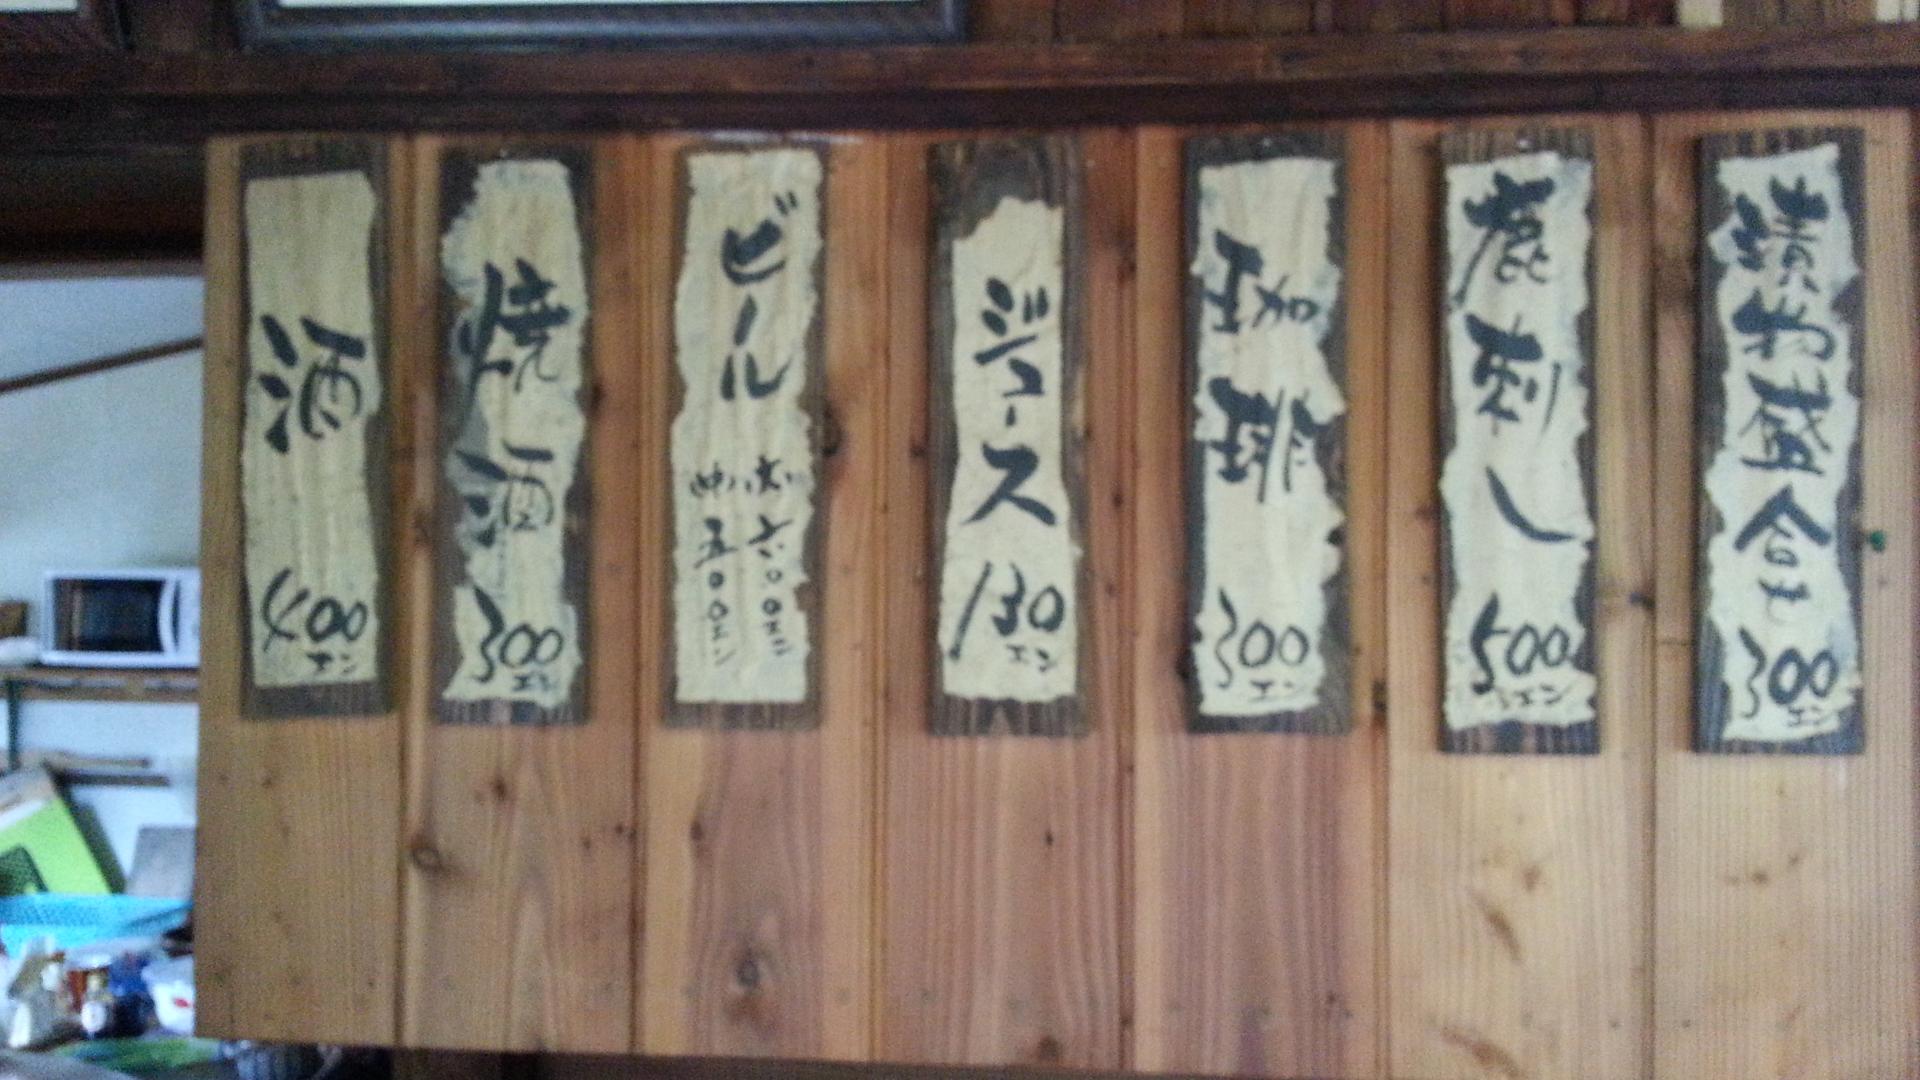 漬物盛合せ
300エン
鹿刺し
500エン
珈琲
300エン
ジュース
130エン
ビール
(大)六〇〇エン
(中)五〇〇エン
焼酒
300エン
酒
400エン